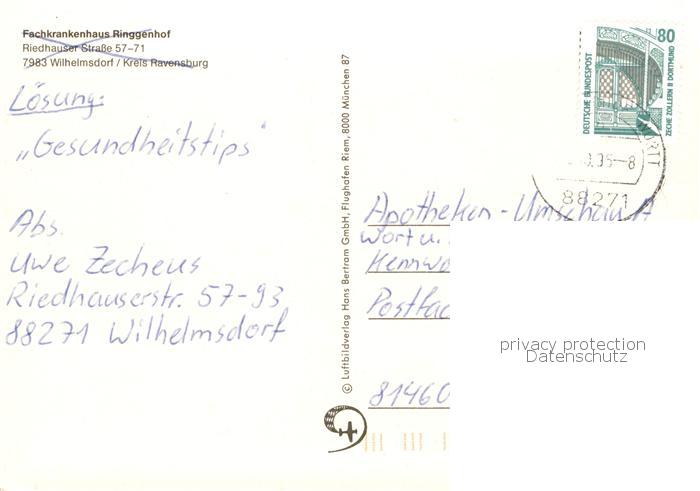 Fachkrankenhaus Ringgenhof
Riedhauser Straße 57–71
7983 Wilhelmsdorf / Kreis Ravensburg
Lösung:
„Gesundheitstips"
Abs.
Uwe Zecheus
Riedhauserstr. 57-93
88271 Wilhelmsdorf
© Luftbildverlag Hans Bertram GmbH, Flughafen Riem, 8000 München 87
80
DEUTSCHE BUNDESPOST
ZECHE ZOLLERN II DORTMUND
95-8
88271
Apotheken-Umschau A
Wort u.
Kennwo
Postfac
81460
privacy protection
Datenschutz